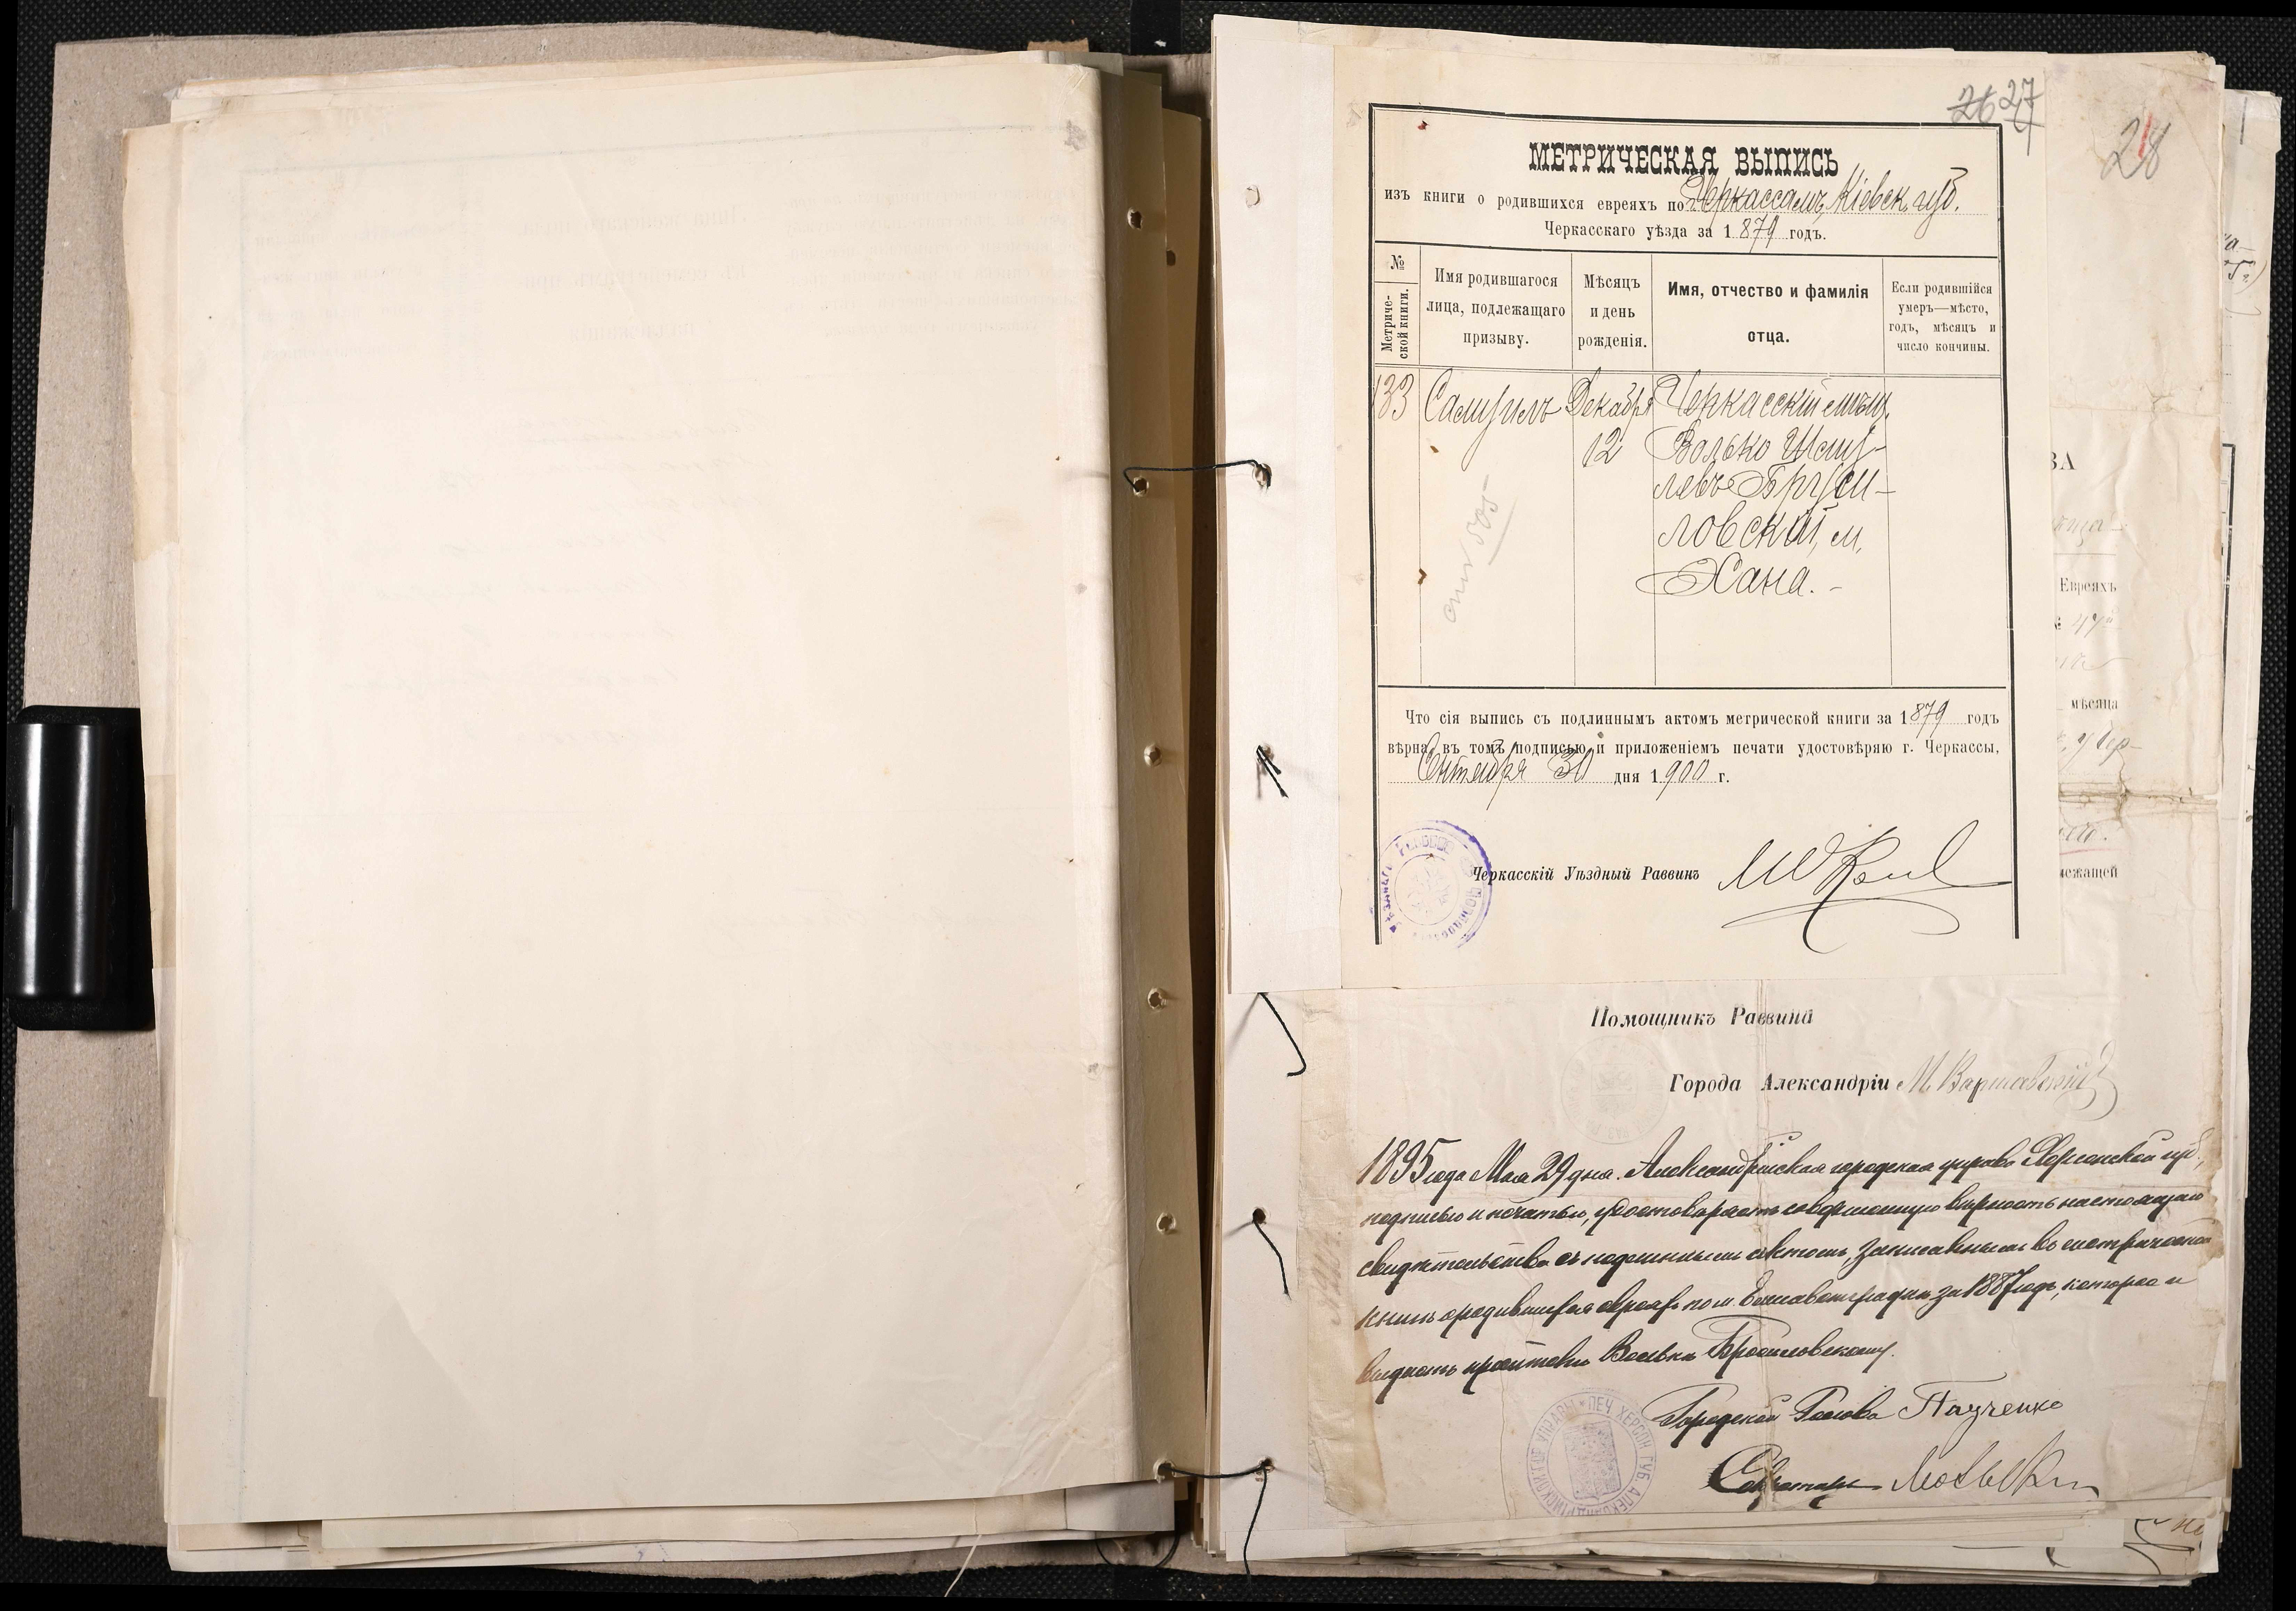 26 27
28
МЕТРИЧЕСКАЯ ВЫПИСЬ
изъ книги о родившихся евреяхъ по г. Черкассамъ, Кіевск. губ.
Черкасскаго уѣзда за 1879 годъ.
№ Метриче-ской книги.
Имя родившагося лица, подлежащаго призыву.
Мѣсяцъ и день рожденія.
Имя, отчество и фамилія отца.
Если родившійся умеръ—мѣсто, годъ, мѣсяцъ и число кончины.
133 Самуилъ Декабря Черкасскій мѣщ.
12 Волько Шму-
левъ Бруси-
ловскій, м.
Хана. -
505
Что сія выпись съ подлиннымъ актомъ метрической книги за 1879 годъ
вѣрна, въ томъ подписью и приложеніемъ печати удостовѣряю г. Черкассы,
Сентября 30 дня 1900 г.
Черкасскій Уѣздный Раввинъ
ВА
Евреяхъ
мѣсяца
лежащей
Помощникъ Раввина
Города Александріи М Варшавскій
1895 года Мая 29 дня. Александрійская городская управа Херсонской губ.,
подписью и печатью, удостовѣряетъ совершенную вѣрность настоящаго
свидѣтельства съ подлиннымъ актомъ, записаннымъ въ метрической
книгѣ о родившихся евреяхъ по м. Елисаветградкѣ за 1887 годъ, которое и
выдано Волькѣ Бросиловскому.
Городской Голова Пазченко
Секретарь
ПЕЧ. ХЕРСОН. ГУБ. АЛЕКСАНДРІЙСКОЙ ГОР. УПРАВЫ